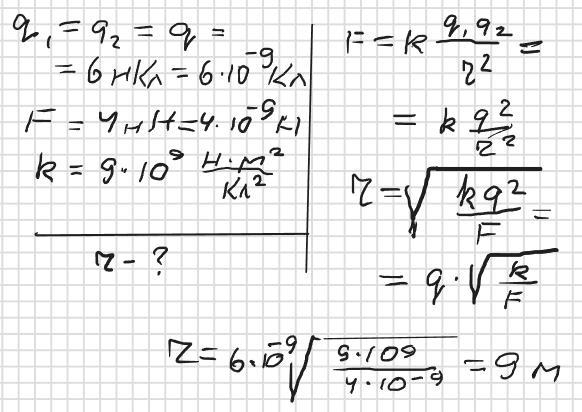 q₁ = q₂ = q =
= 6 нКл = 6·10⁻⁹ Кл
F = 4 нН = 4·10⁻⁹ Н
k = 9·10⁹ Н·м²/Кл²
r - ?
F = k q₁q₂/r² =
= k q²/r²
r = √(kq²/F) =
= q·√(k/F)
r = 6·10⁻⁹ √(9·10⁹/4·10⁻⁹) = 9 м